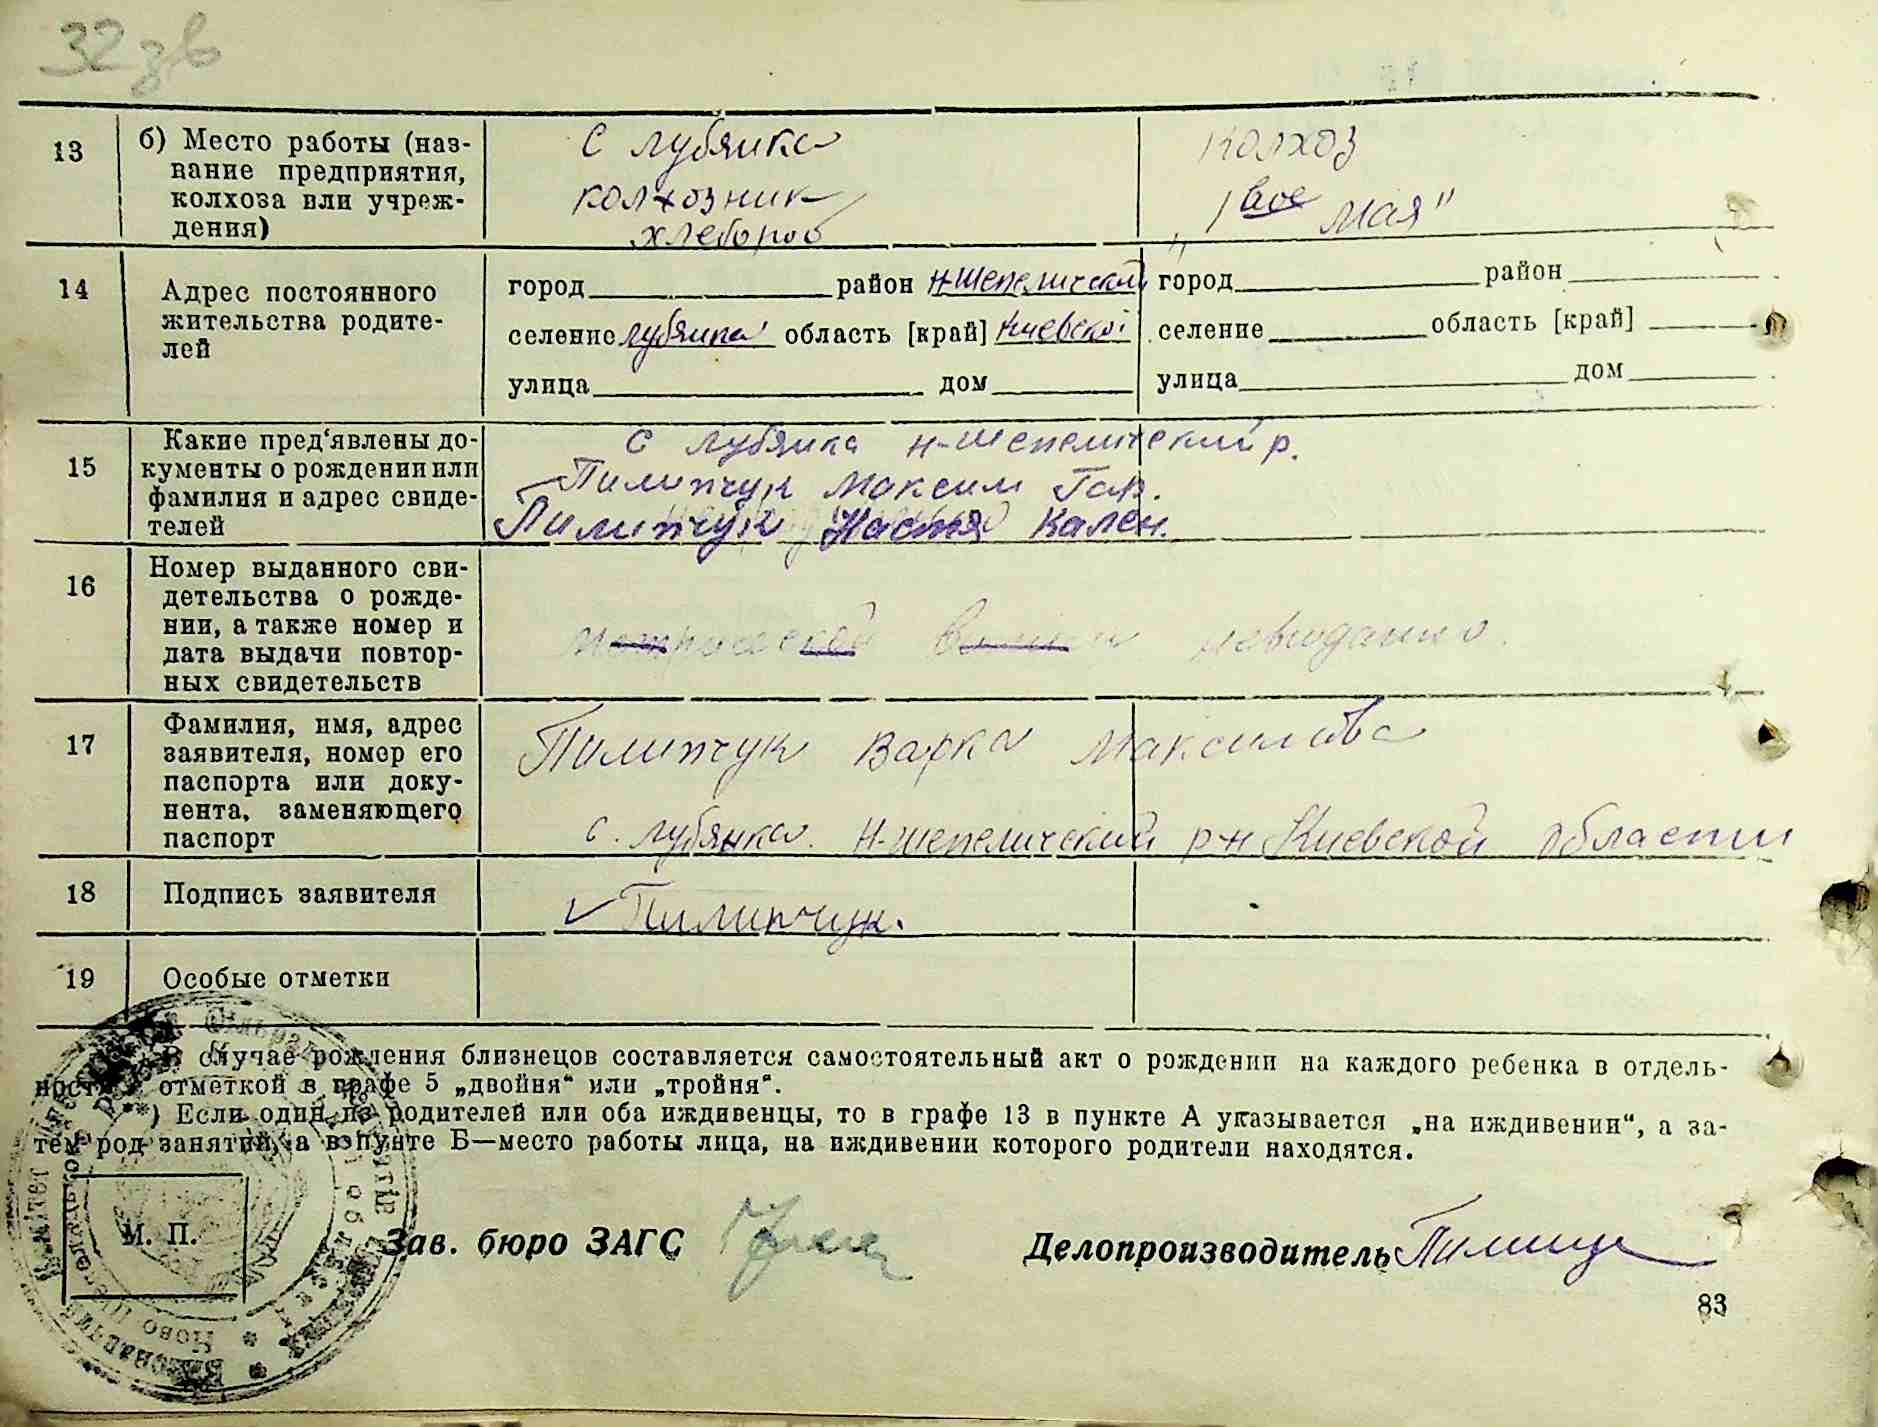 32 зв
13
б) Место работы (наз-
вание предприятия,
колхоза или учреж-
дения)
с Лубянка
колхозник
хлебороб
колхоз
„1 вое Мая"
14
Адрес постоянного
жительства родите-
лей
город район Н-Шепелический
селение Лубянка область [край] Киевской
улица дом
город район
селение область [край]
улица дом
15
Какие пред‘явлены до-
кументы о рождении или
фамилия и адрес свиде-
телей
с Лубянка Н-Шепелический р.
Пилипчук Максим Гав.
Пилипчук Настя Кален.
16
Номер выданного сви-
детельства о рожде-
нии, а также номер и
дата выдачи повтор-
ных свидетельств
невидано.
17
Фамилия, имя, адрес
заявителя, номер его
паспорта или доку-
нента, заменяющего
паспорт
Пилипчук Варка Максимовa
с. Лубянка Н-Шепелический р-н Киевской области
18
Подпись заявителя
Пилипчук.
19
Особые отметки
В случае рождения близнецов составляется самостоятельный акт о рождении на каждого ребенка в отдель-
ности с отметкой в графе 5 „двойня“ или „тройня“.
) Если один из родителей или оба иждивенцы, то в графе 13 в пункте А указывается „на иждивении“, а за-
тем род занятий, а в пункте Б—место работы лица, на иждивении которого родители находятся.
М. П.
Зав. бюро ЗАГС
Делопроизводитель
83